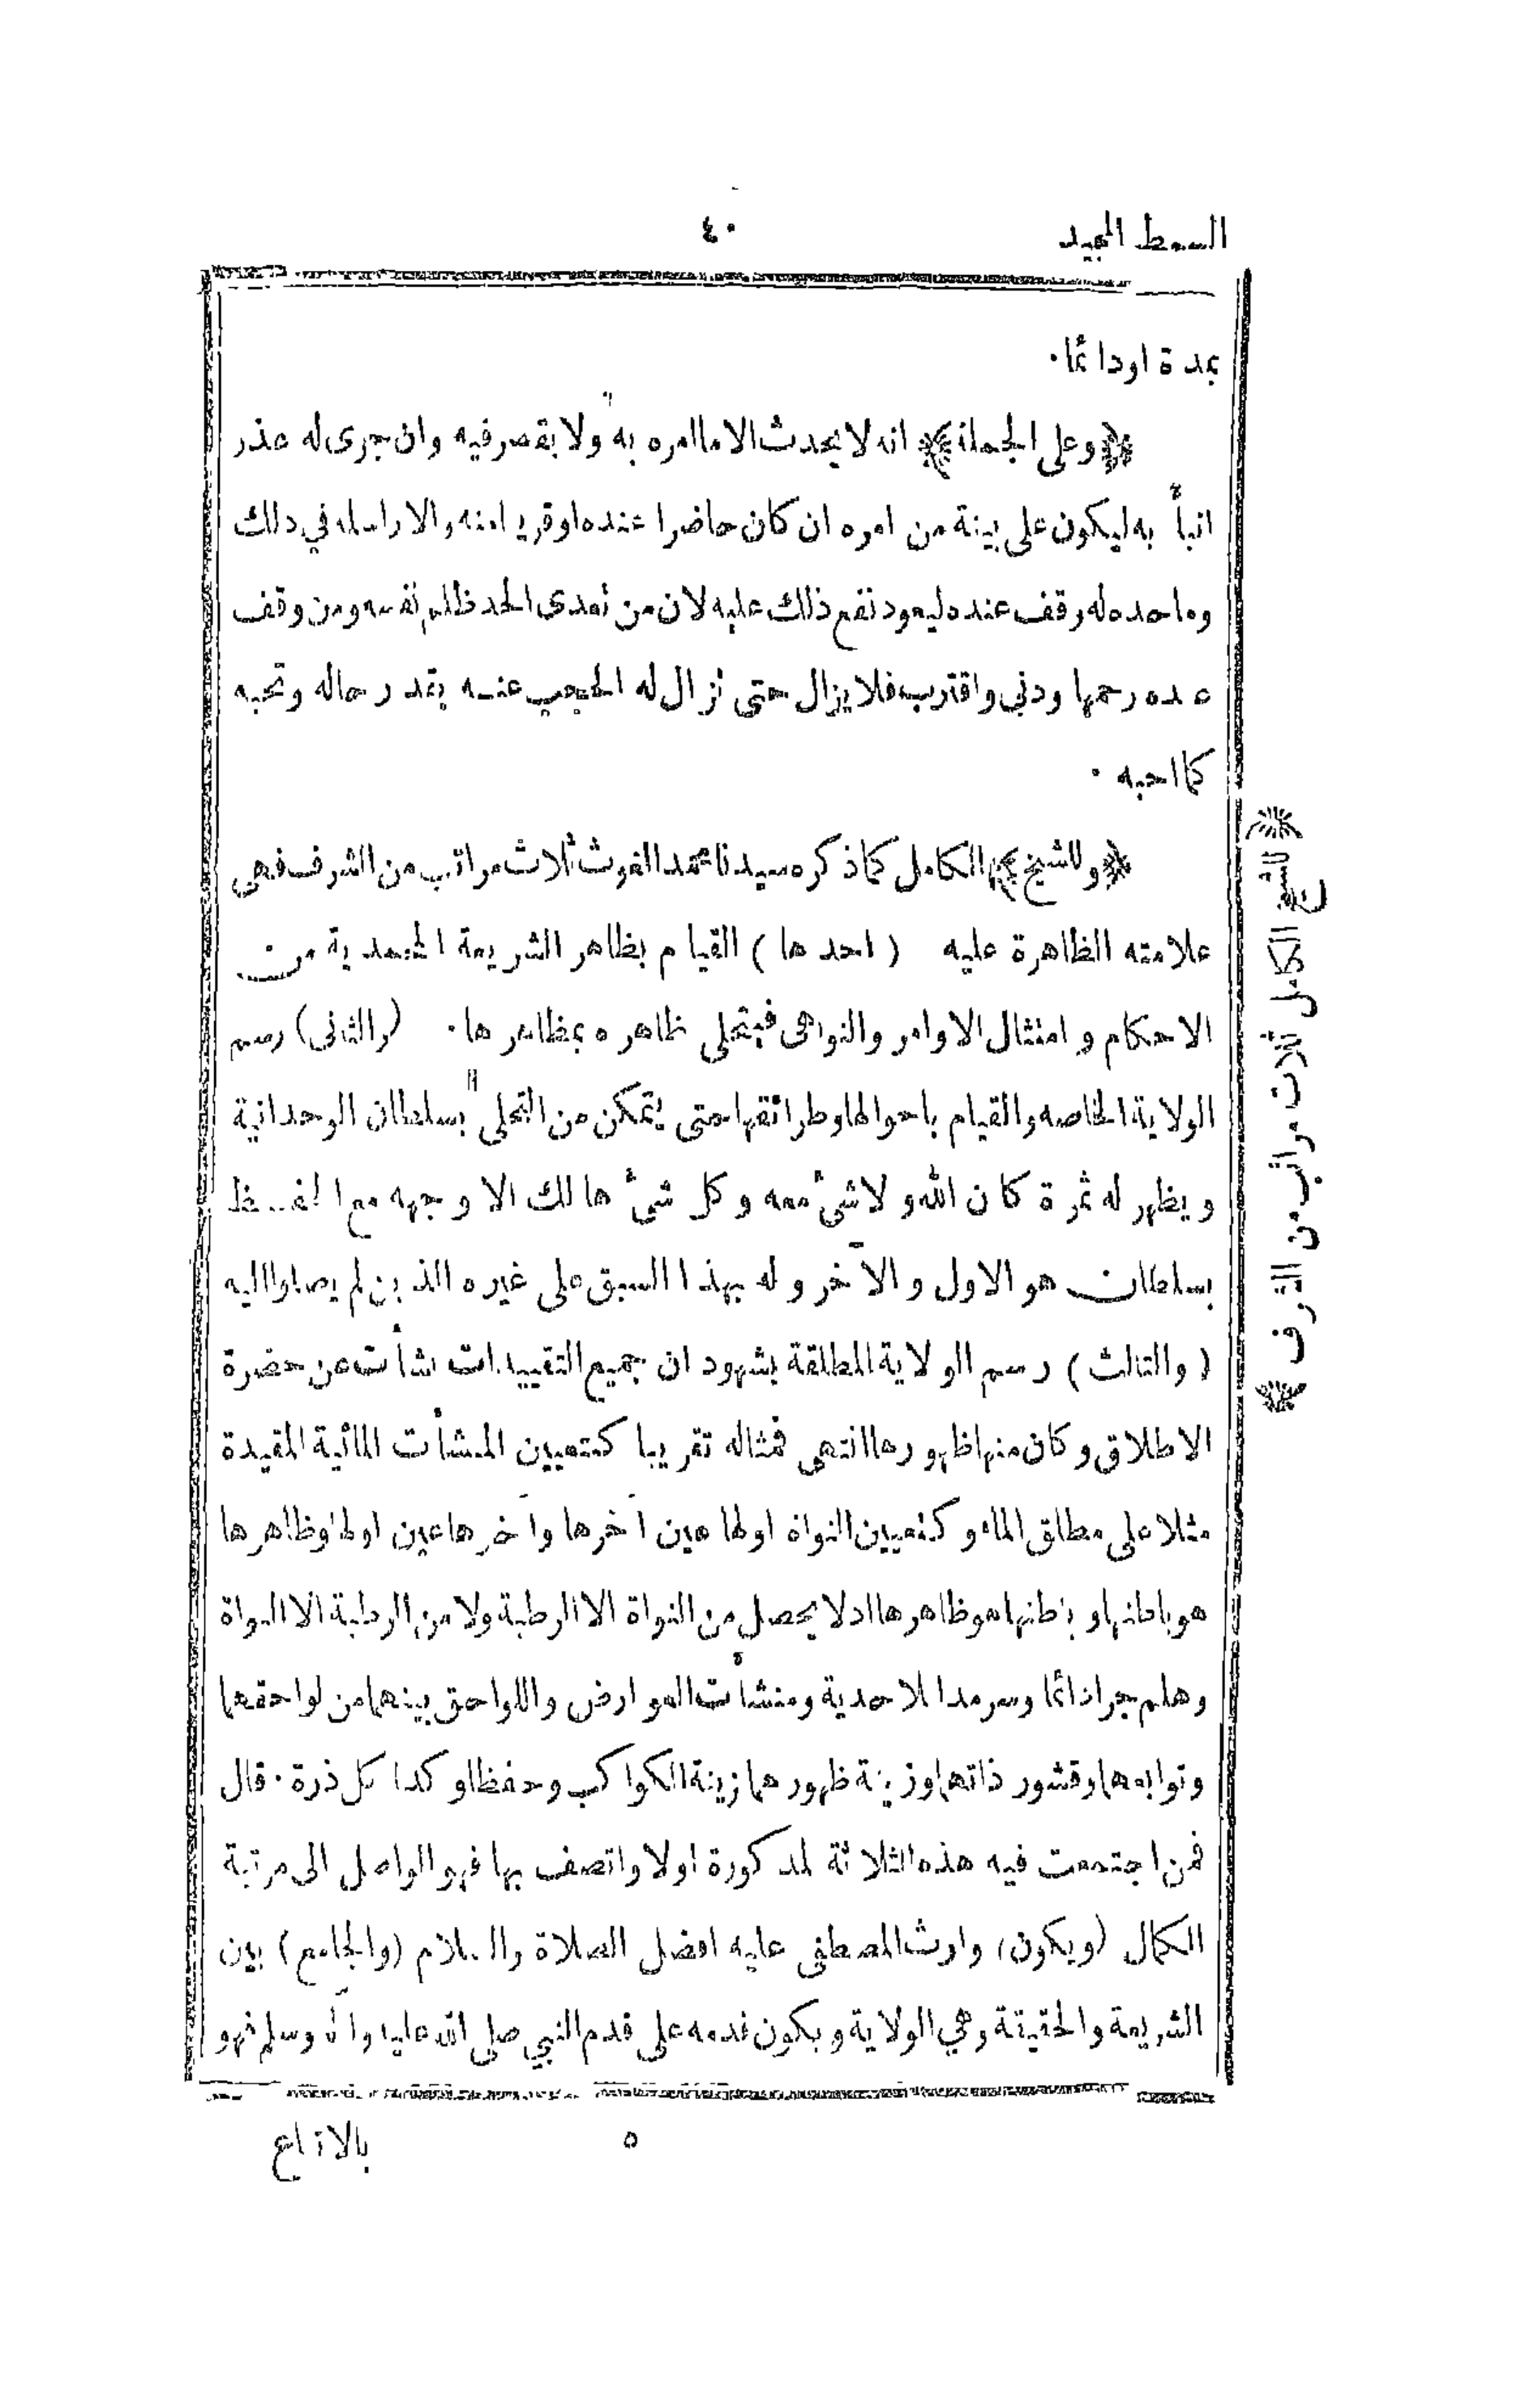 السمط المجيد
٤٠
بمدة اودائما۰
﴿وعلى الجملة﴾ انه لا يحدث الا ما امره به ولا يقصر فيه وان جرى له عذر
انبأ به ليكون على بينة من امره ان كان حاضرا عنده او قريبا منه والا راسله في ذلك
وما حده له وقف عنده ليعود نفع ذلك عليه لان من تعدى الحد ظلم نفسه ومن وقف
عنده رحمها ودنى واقترب فلا يزال حتى تزال له الحجب عنه بقدر حاله وتحبه
كما احبه ۰
﴿وللشيخ﴾ الكامل كما ذكره سيدنا محمد الغوث ثلاث مراتب من الشرف فهى
علامته الظاهرة عليه (احدها) القيام بظاهر الشريعة المحمدية من
الاحكام وامتثال الاوامر والنواهى فيتحلى ظاهره بمظاهرها۰ (والثانى) رسم
الولاية الخاصه والقيام باحوالها وطرائقها حتى يتمكن من التحلى بسلطان الوحدانية
ويظهر له ثمرة كان الله ولا شئ معه وكل شئ هالك الا وجهه مع الحفظ
بسلطان هو الاول والآخر وله بهذا السبق على غيره الذين لم يصلوا اليه
(والثالث) رسم الولاية المطلقة بشهود ان جميع التقييدات نشأت عن حضرة
الاطلاق وكان منها ظهورها انتهى فمثاله تقريبا كتعيين المنشأت المائية المقيدة
مثلا على مطلق الماء وكتعيين النواة اولها عين آخرها وآخرها عين اولها وظاهرها
هو باطنها وباطنها هو ظاهرها اذ لا يحصل من النواة الا الرطبة ولا من الرطبة الا النواة
وهلم جرا دائما وسرمدا للاحدية ومنشأت العوارض واللواحق بينهما من لواحقهما
وتوابعهما وقشور ذاتهما وزينة ظهورهما زينة الكواكب وحفظا وكذا كل ذرة۰ قال
فمن اجتمعت فيه هذه الثلاثة المذكورة اولا واتصف بها فهو الواصل الى مرتبة
الكمال (ويكون) وارث المصطفى عليه افضل الصلاة والسلام (والجامع) بين
الشريعة والحقيقة وهي الولاية ويكون قدمه على قدم النبي صلى الله عليه وآله وسلم فهو
٥
بالاتباع
﴿للشيخ الكامل ثلاث مراتب من الشرف﴾